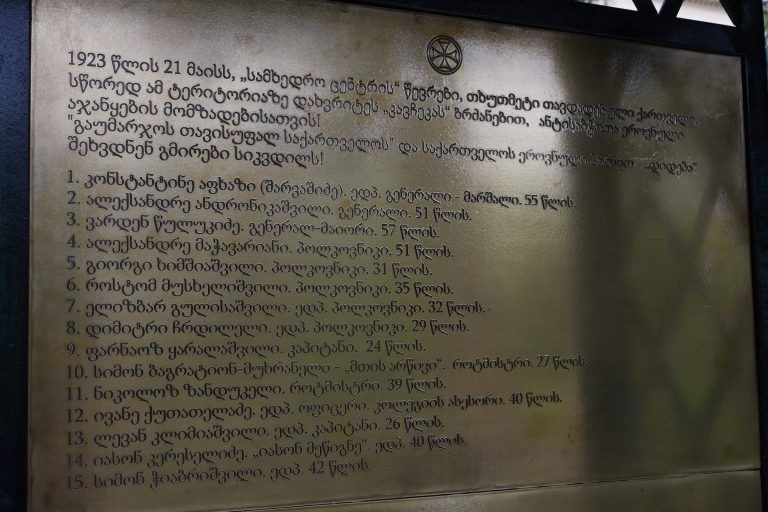 1923 წლის 21 მაისს, „სამხედრო ცენტრის“ წევრები, თხუთმეტი თავდადებული ქართველი
სწორედ ამ ტერიტორიაზე დახვრიტეს „კავჩეკას“ ბრძანებით, ანტისაბჭოთა ეროვნული
აჯანყების მომზადებისათვის!
"გაუმარჯოს თავისუფალ საქართველოს" და საქართველოს ეროვნული ჰიმნით - „დიდება“
შეხვდნენ გმირები სიკვდილს!
1. კონსტანტინე აფხაზი (შარვაშიძე). ედპ. გენერალი - მარშალი. 55 წლის.
2. ალექსანდრე ანდრონიკაშვილი. გენერალი. 51 წლის.
3. ვარდენ წულუკიძე. გენერალ-მაიორი. 57 წლის.
4. ალექსანდრე მაჭავარიანი. პოლკოვნიკი. 51 წლის.
5. გიორგი ხიმშიაშვილი. პოლკოვნიკი. 31 წლის.
6. როსტომ მუსხელიშვილი. პოლკოვნიკი. 35 წლის.
7. ელიზბარ გულისაშვილი. ედპ. პოლკოვნიკი. 32 წლის.
8. დიმიტრი ჩრდილელი. ედპ. პოლკოვნიკი. 29 წლის.
9. ფარნაოზ ყარალაშვილი. კაპიტანი. 24 წლის.
10. სიმონ ბაგრატიონ-მუხრანელი - „მთის არწივი“. როტმისტრი. 27 წლის.
11. ნიკოლოზ ზანდუკელი. როტმისტრი. 39 წლის.
12. ივანე ქუთათელაძე. ედპ. ოფიცერი. კოლეგიის ასესორი. 40 წლის.
13. ლევან კლიმიაშვილი. ედპ. კაპიტანი. 26 წლის.
14. იასონ კერესელიძე. „იასონ მეწიგნე“. ედპ. 40 წლის.
15. სიმონ ჭიაბრიშვილი. ედპ. 42 წლის.